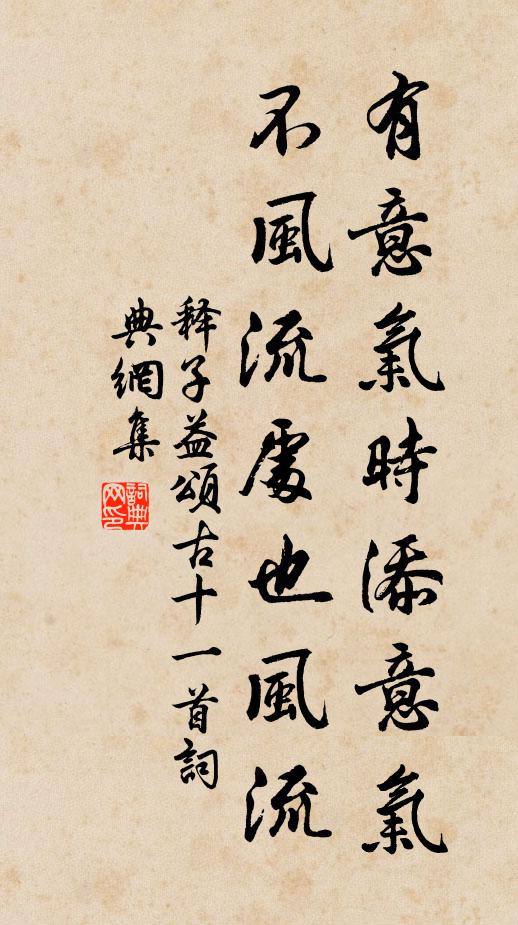 有意氣時添意氣
不風流處也風流
释子益頌古十一首詞
典網集
詞典网印